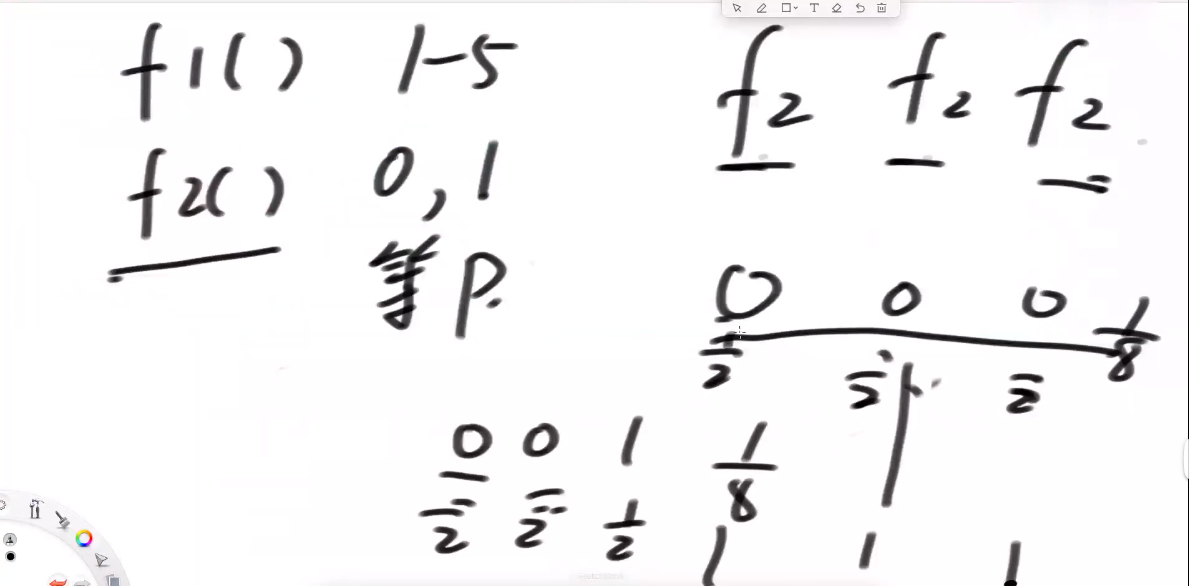 f1() 1-5
f2() 0,1
等 P.
f2 f2 f2
0 0 0 1/8
1/2 1/2 1/2
0 0 1 1/8
1/2 1/2 1/2
1 1 1